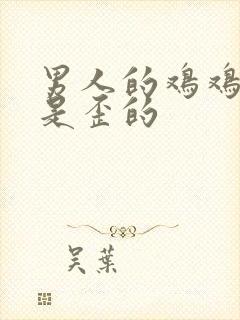 男人的鸡鸡
是歪的
吴葉